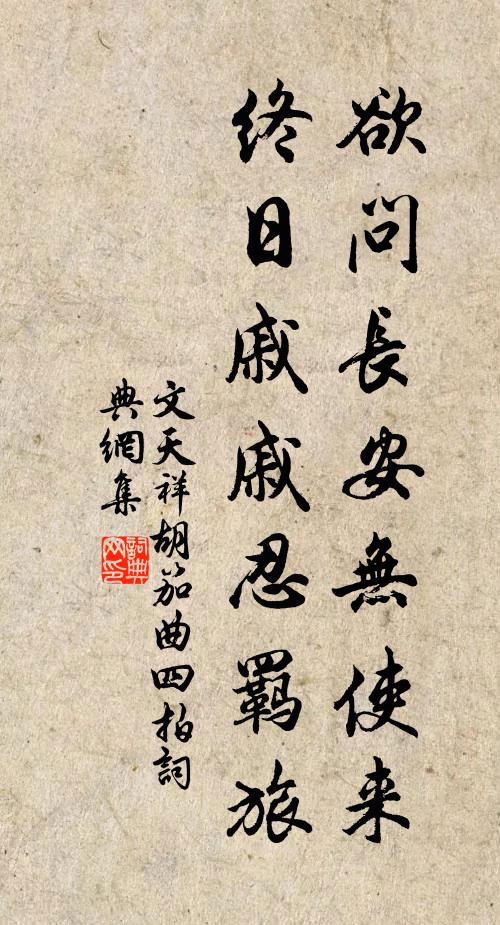 欲問長安無使来
終日戚戚忍羈旅
文天祥胡笳曲四拍詞
典網集
詞典
网印